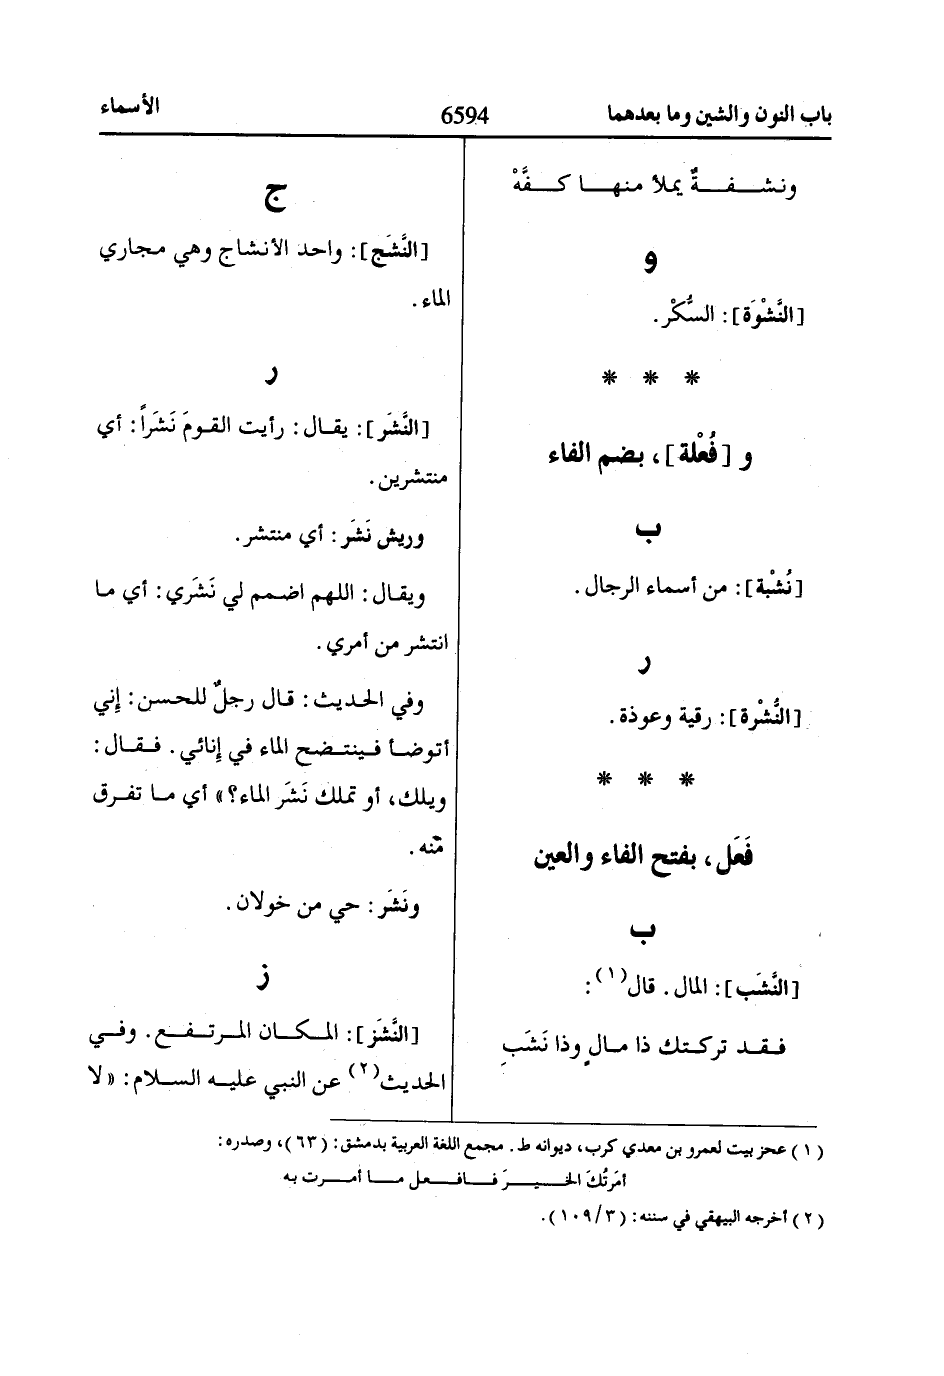 باب النون والشين وما بعدهما
6594
الأسماء
ونشـفـةٌ يملأ منهـا كـفَّهْ
و
[النَّشْوَة]: السُّكْر.
* * *
و [فُعْلة]، بضم الفاء
ب
[نُشْبة]: من أسماء الرجال.
ر
[النُّشْرة]: رقية وعوذة.
* * *
فَعَل، بفتح الفاء والعين
ب
[النَّشَب]: المال. قال(١):
فـقـد تركـتـك ذا مـالٍ وذا نَشَبِ
ج
[النَّشَج]: واحد الأنشاج وهي مجاري
الماء.
ر
[النَّشَر]: يقـال: رأيت القـومَ نَشَراً: أي
منتشرين.
وريش نَشَر: أي منتشر.
ويقـال: اللهم اضـمم لي نَشَري: أي مـا
انتشر من أمري.
وفي الحديث: قال رجلٌ للحسن: إني
أتوضـأ فـينتـضح الماء في إنائي. فـقـال:
ويلك، أو تملك نَشَر الماء؟» أي مـا تفـرق
منه.
ونَشَر: حي من خولان.
ز
[النَّشَز]: المكـان المـرتـفـع. وفي
الحديث(٢) عن النبي عليـه السـلام: «لا
(١) عجز بيت لعمرو بن معدي كرب، ديوانه ط. مجمع اللغة العربية بدمشق: (٦٣)، وصدره:
أمَرتُكَ الخـيـرَ فـافـعل مـا أمـرت به
(٢) أخرجه البيهقي في سننه: (٣/١٠٩).